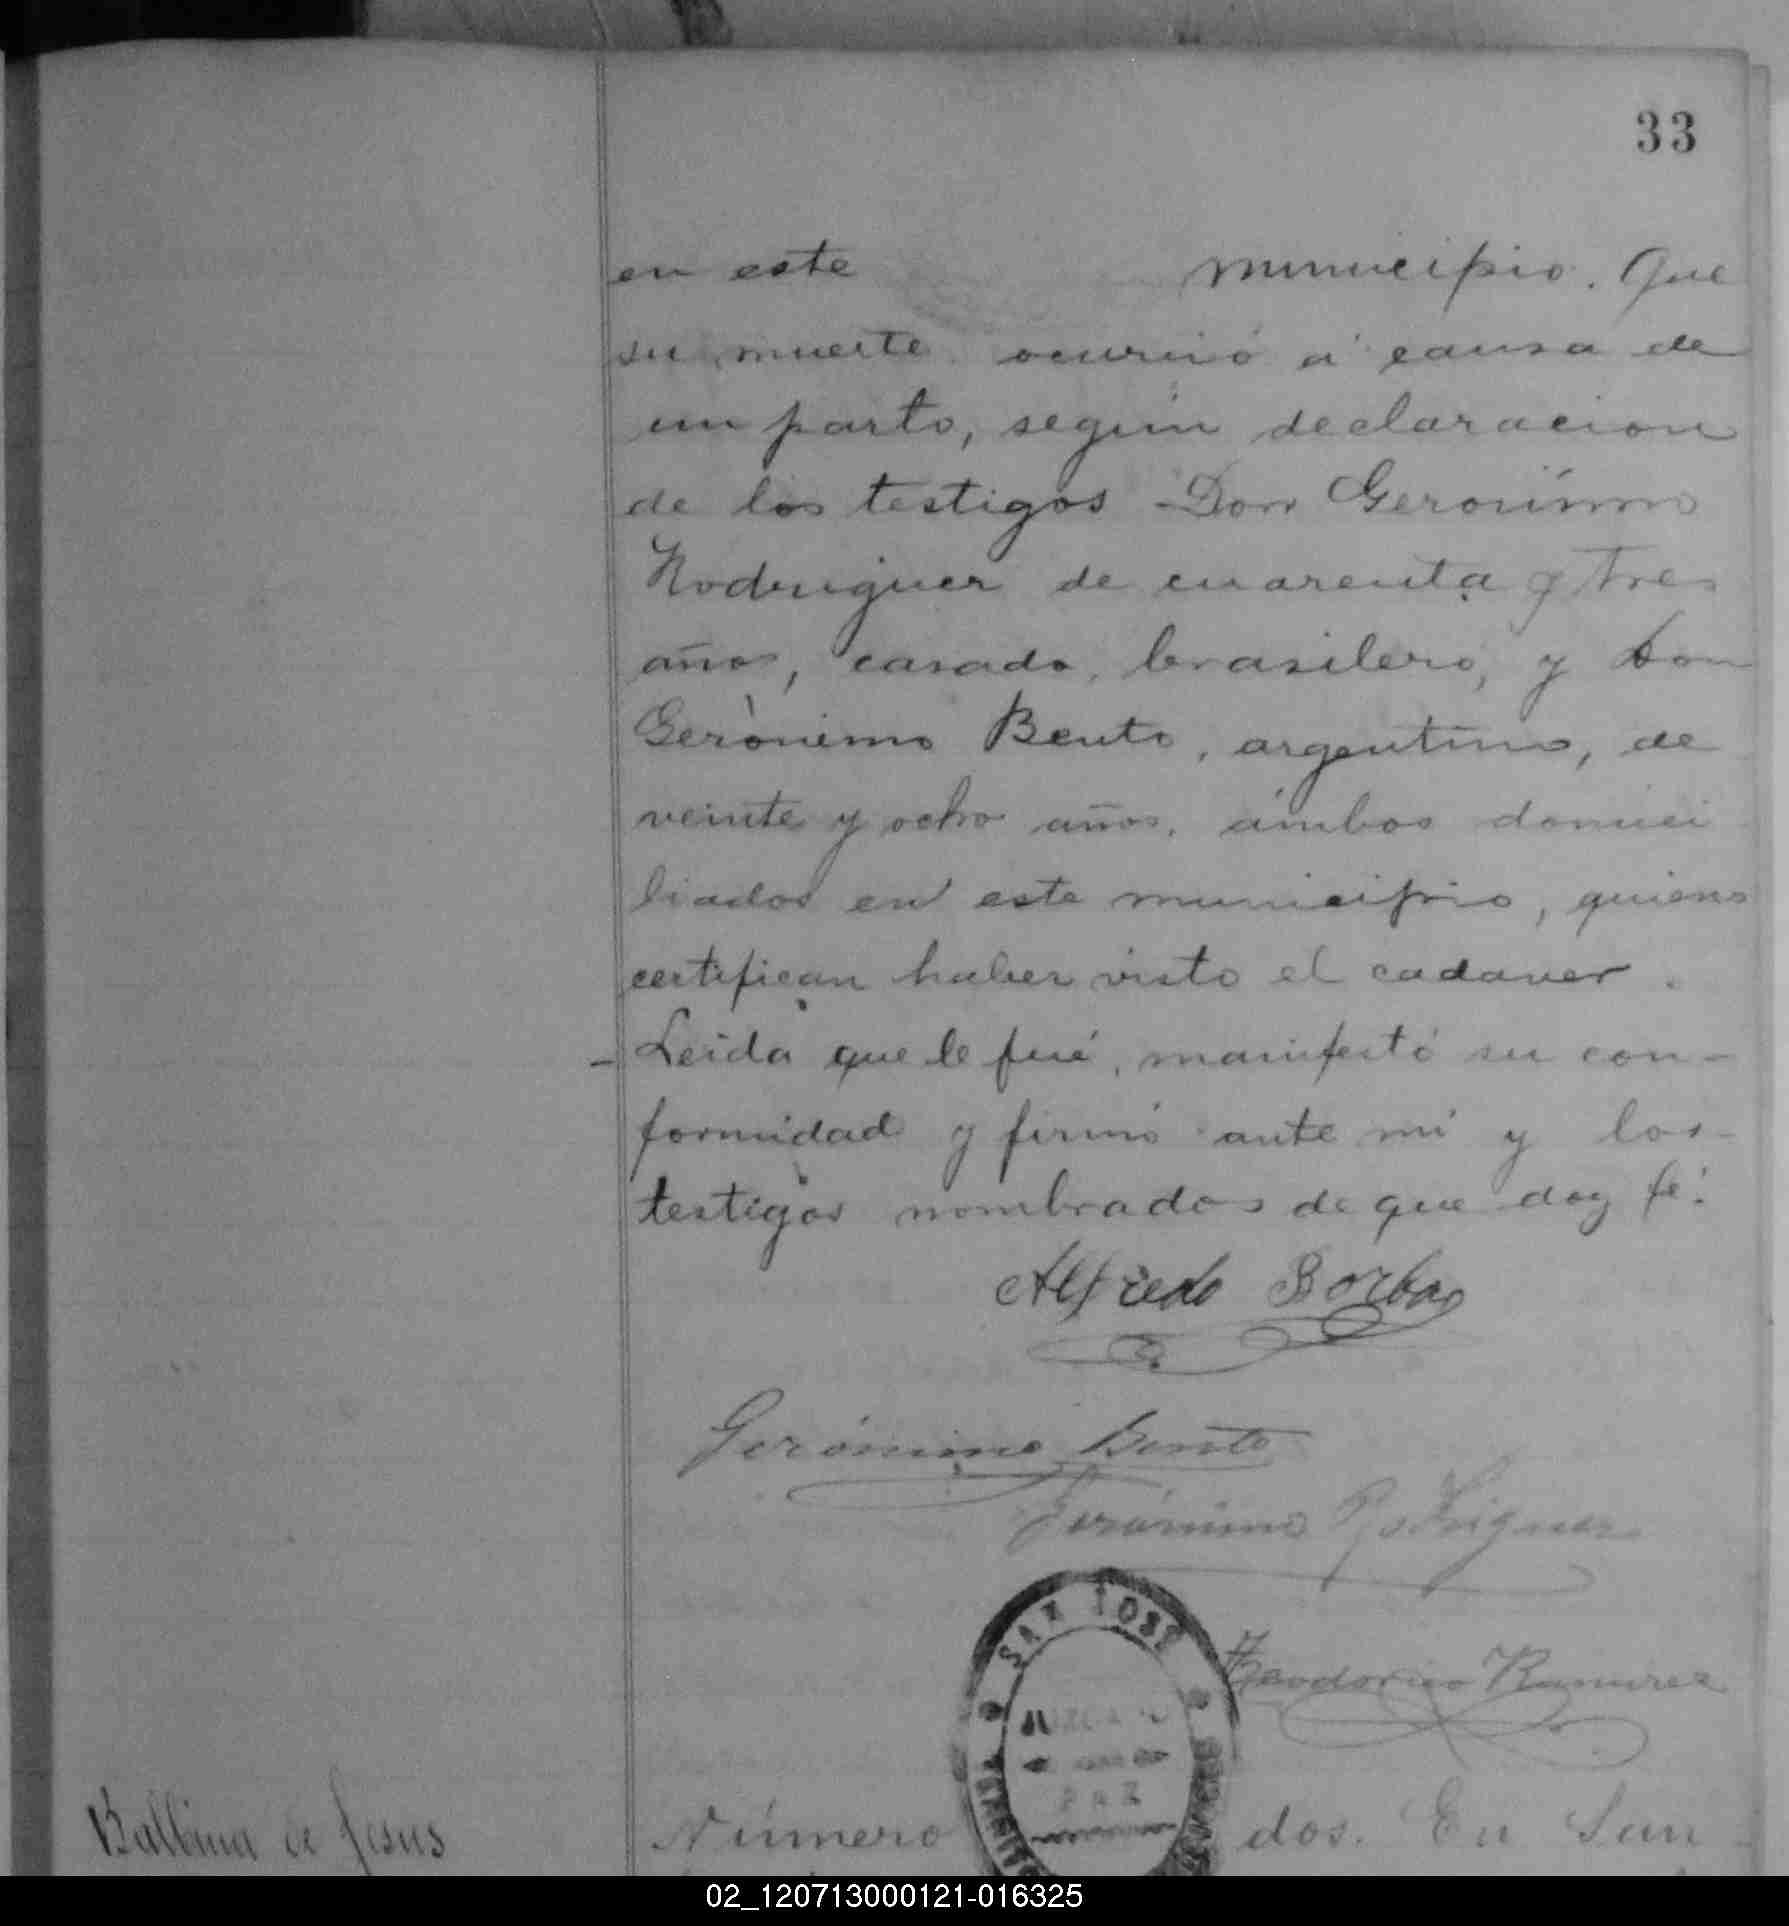 33
en este municipio. Que
su muerte ocurrió á causa de
un parto, según declaracion
de los testigos Don Gerónimo
Rodriguez de cuarenta y tres
años, casado, brasilero, y don
Gerónimo Bento, argentino, de
veinte y ocho años, ámbos domici
liados en este municipio, quienes
certifican haber visto el cadaver.
Leida que le fué, manifestó su con-
formidad y firmó ante mi y los
testigos nombrados de que doy fé.
Alfredo Borbas
Gerónimo Bento
Gerónimo Rodriguez
SAN JOSÉ
Teodorico Ramirez
JUZGADO
PAZ
Balbina de Jesus
Número dos. En San
02_120713000121-016325